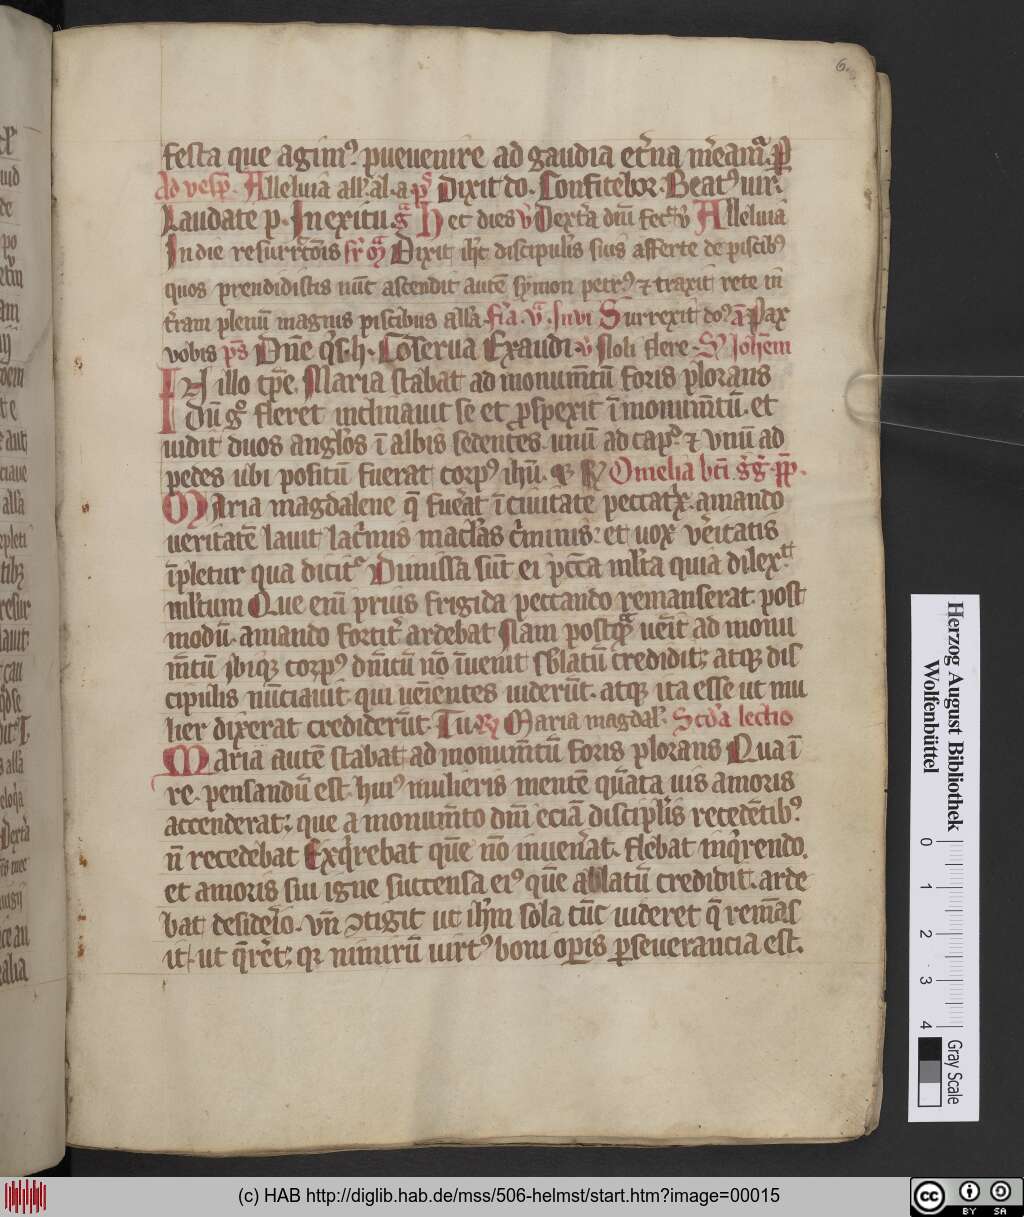 6.
festa que agim⁹. pueuenire ad gaudia et̾na m̾eam̾. p̱
Ad vesp̱. Alleluia all̾. al. a. p̄s Dixit do. Confitebor. Beat⁹ uir.
Laudate p. In exitu. g̾ Hec dies v̾ Dext̾a dn̄i fec̾ v̾ Alleluia
In die resurrc̄oīs fr̾ Dixit ih̄c discipulis suis afferte de piscib⁹
quos prendidistis nūc ascendit autē symon petr⁹ ⁊ traxit rete in
t̾ram plenū magnis piscibus all̾a. Surrexit do⁹ a̾ Pax
vobis ps̄ Dn̄e q̾s. h. Co̾serua Exaudi v̾ Noli flere. S̾ Joh̄em
In illo tp̄e. Maria stabat ad monum̄tū foris plorans
Dū g° fleret inclinauit se et ꝓspexit ī monum̄tū. et
uidit duos angl̾os ī albis sedentes. unū ad cap̾ ⁊ vnū ad
pedes ubi positū fuerat corp⁹ ih̄u. Omelia bt̄i g̾g̾. pp̄.
Maria magdalene q̄ fu̾at ī ciuitate peccat̾x. amando
ueritatē lauit lac̾mis macl̾as c̾minis: et uox v̾itatis
īpletur qua dicit̾ Dimissa sūt ei pc̄ca ml̾ta quia dilex̾
ml̾tum Que eni̅ prius frigida peccando remanserat. post
modū. amando fortit̾ ardebat Nam postq̾ uēit ad monu
m̄tū ibiqꝫ corp⁹ dn̄icū nō īuenit sb̾latū credidit; atqꝫ dis
cipulis nūciauit. qui uēientes uiderūt. atqꝫ ita esse ut mu
lier dixerat crediderūt. Tu. Maria magdal̾. Sc̄da lectio
Maria autē stabat ad monum̄tū foris plorans Qua ī
re. pensandū est. hui⁹ mulieris mentē qu̾ata uis amoris
accenderat; que a monum̄to dn̄i eciā discipl̾is recedētib⁹.
n̄ recedebat Exq̾rebat quē nō inuen̾at. flebat inq̾rendo.
et amoris sui igne succensa ei⁹ quē ablatū credidit. arde
bat desid̾io. vn̄ ↄtigit ut ih̄m sola tūc uideret q̄ remās
it. ut q̄r̾et; qꝛ nimirū uirt⁹ boni op̱is p̱seuerancia est.
Herzog August Bibliothek
Wolfenbüttel
0 1 2 3 4
Gray Scale
(c) HAB http://diglib.hab.de/mss/506-helmst/start.htm?image=00015
cc BY SA